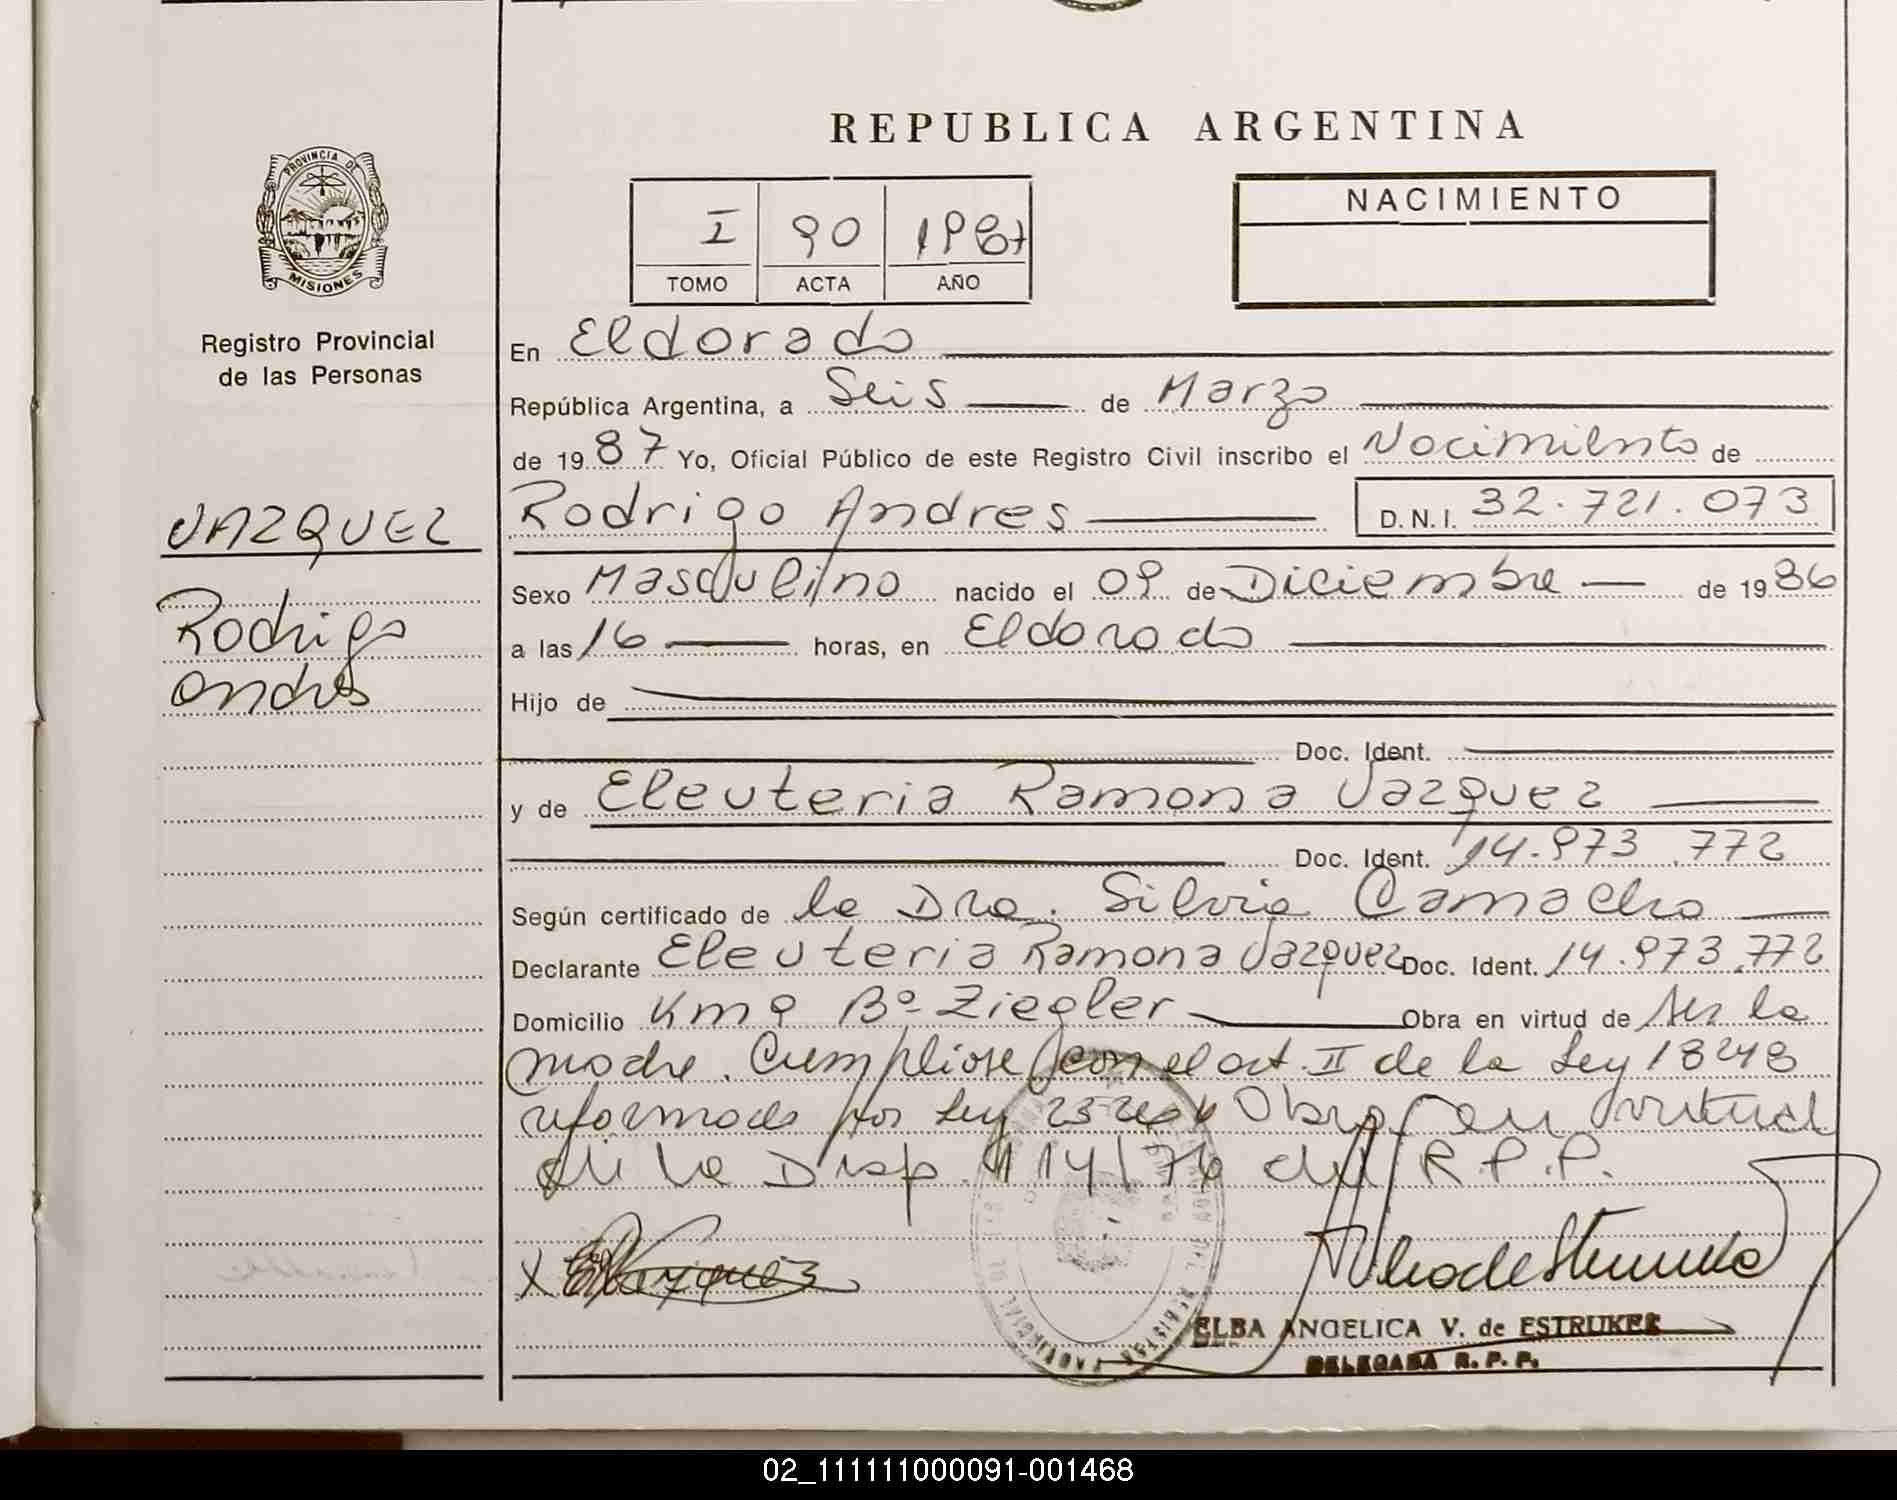 REPUBLICA ARGENTINA
PROVINCIA DE
MISIONES
Registro Provincial
de las Personas
I 90 1987
TOMO ACTA AÑO
NACIMIENTO
VAZQUEZ
Rodrigo
Andres
En Eldorado
República Argentina, a Seis de Marzo
de 1987 Yo, Oficial Público de este Registro Civil inscribo el Nacimiento de
Rodrigo Andres D.N.I. 32.721.073
Sexo Masculino nacido el 09 de Diciembre de 1986
a las 16 horas, en Eldorado
Hijo de
Doc. Ident.
y de Eleuteria Ramona Vazquez
Doc. Ident. 14.973.772
Según certificado de la Dra. Silvia Camacho
Declarante Eleuteria Ramona Vazquez Doc. Ident. 14.973.772
Domicilio Km 9 Bº Ziegler Obra en virtud de ser la
madre. Cumpliose con el art. II de la Ley 18248
reformada por Ley Obra en virtud
de la Disp. 114/76 del R.P.P.
x Vazquez
ELBA ANGELICA V. de ESTRUKER
DELEGADA R. P. P.
02_111111000091-001468